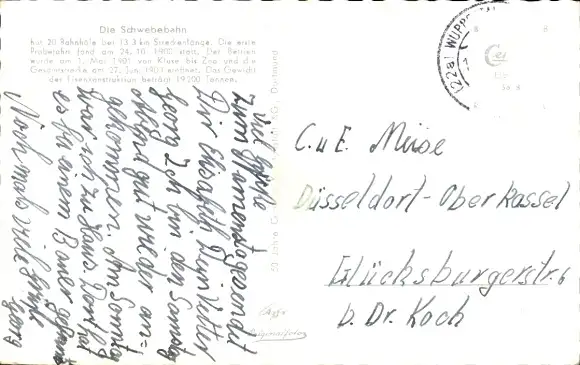 Die Schwebebahn
hat 20 Bahnhöfe bei 13,3 km Streckenlänge. Die erste
Probefahrt fand am 24. 10. 1900 statt. Der Betrieb
wurde am 1. Mai 1901 von Kluse bis Zoo und die
Gesamtstrecke am 27. Jun. 1903 eröffnet. Das Gewicht
der Eisenkonstruktion beträgt 19200 Tonnen.
(22a) WUPP
Viel Grüße
zum Namenstag sendet
Dir Elisabeth Dein Vetter
Georg Ich bin den Samstag
Abend gut wieder an=
gekommen. Am Sonntag
war ich zu Hans Dort hat
es bei einem Bauer
Noch mals viele Grüße
Georg
C. u E. Meise
Düsseldorf-Oberkassel
Glücksburgerstr. 6
b. Dr. Koch